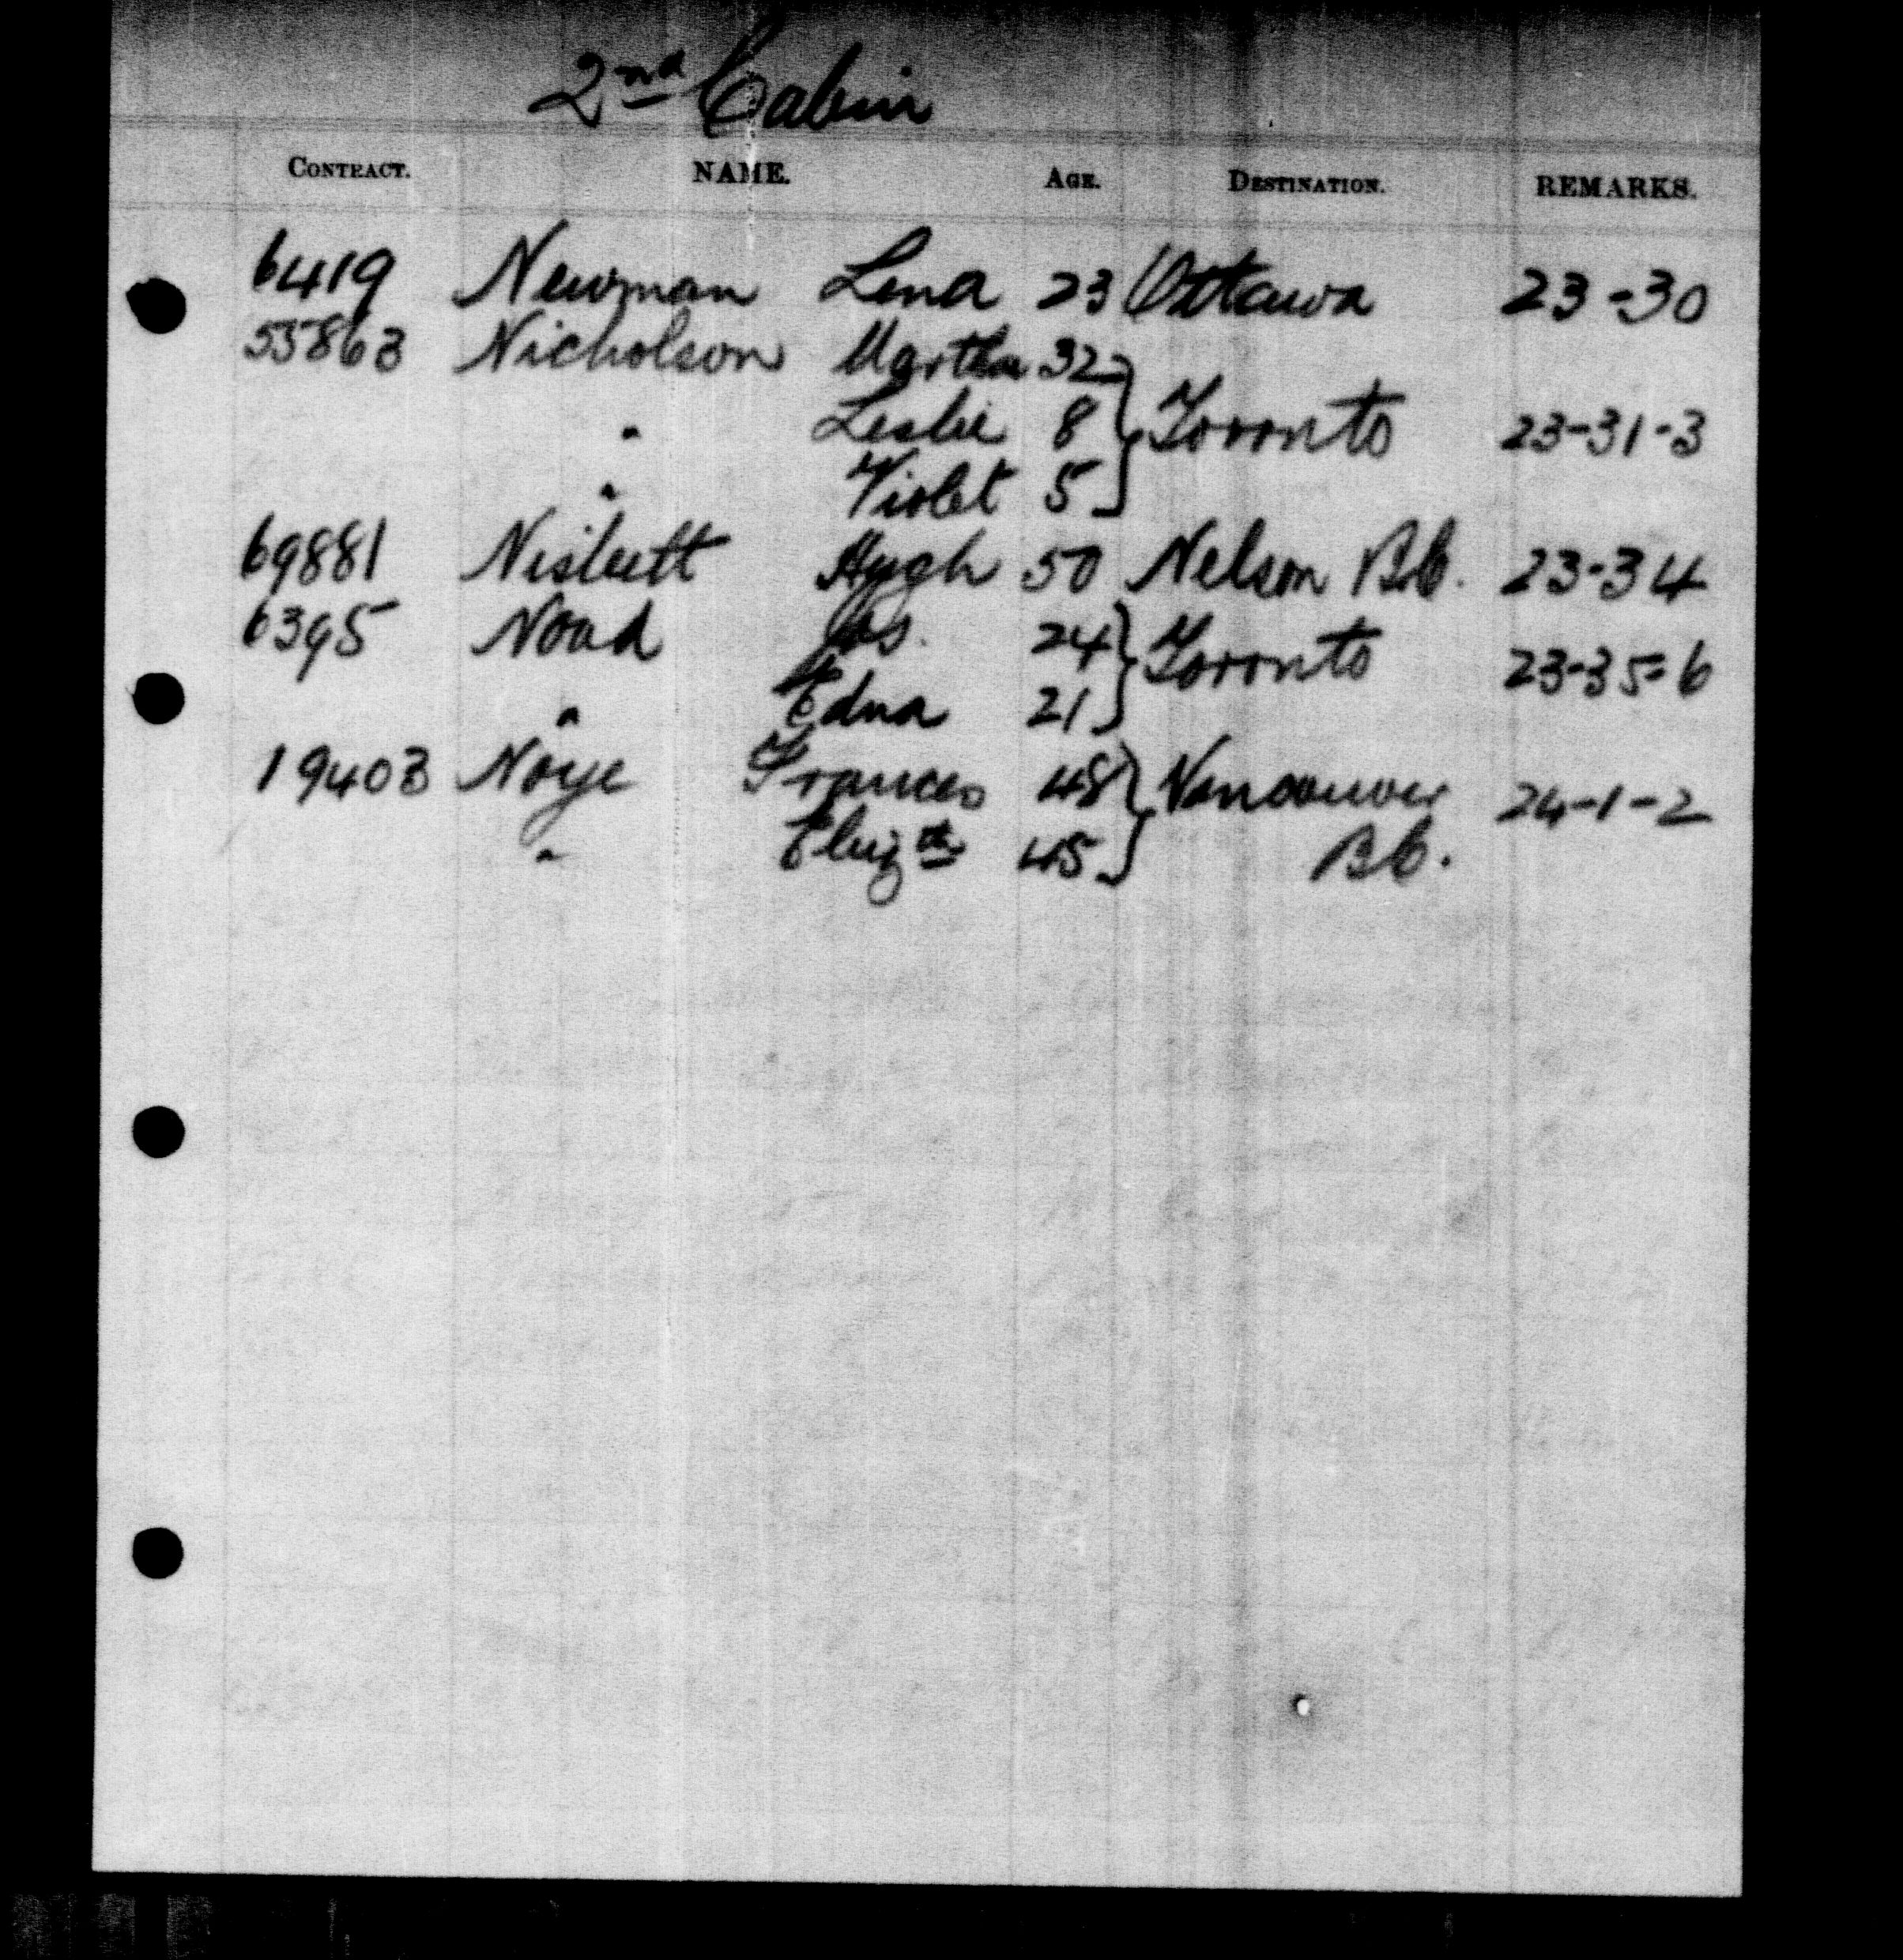 2nd Cabin
CONTRACT. NAME. AGE. DESTINATION. REMARKS.
6419 Newman Lena 23 Ottawa 23-30
55863 Nicholson Martha 32
" Leslie 8 Toronto 23-31-3
" Violet 5
69881 Nisbett Hugh 50 Nelson B.C. 23-34
6395 Noad Jas. 24 Toronto 23-35-6
" Edna 21
19403 Noye Frances 48 Vancouver 24-1-2
" Elizth 45 B.C.